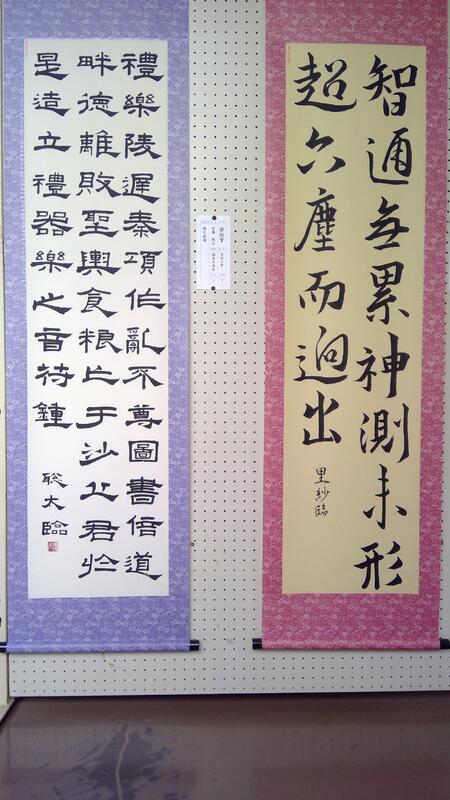 智通無累神測未形
超六塵而逈出
里紗臨
禮樂陵遲秦項作亂不尊圖書倍道
畔德離敗聖輿食粮亡于沙丘君於
是造立禮器樂之音符鍾
聡太臨